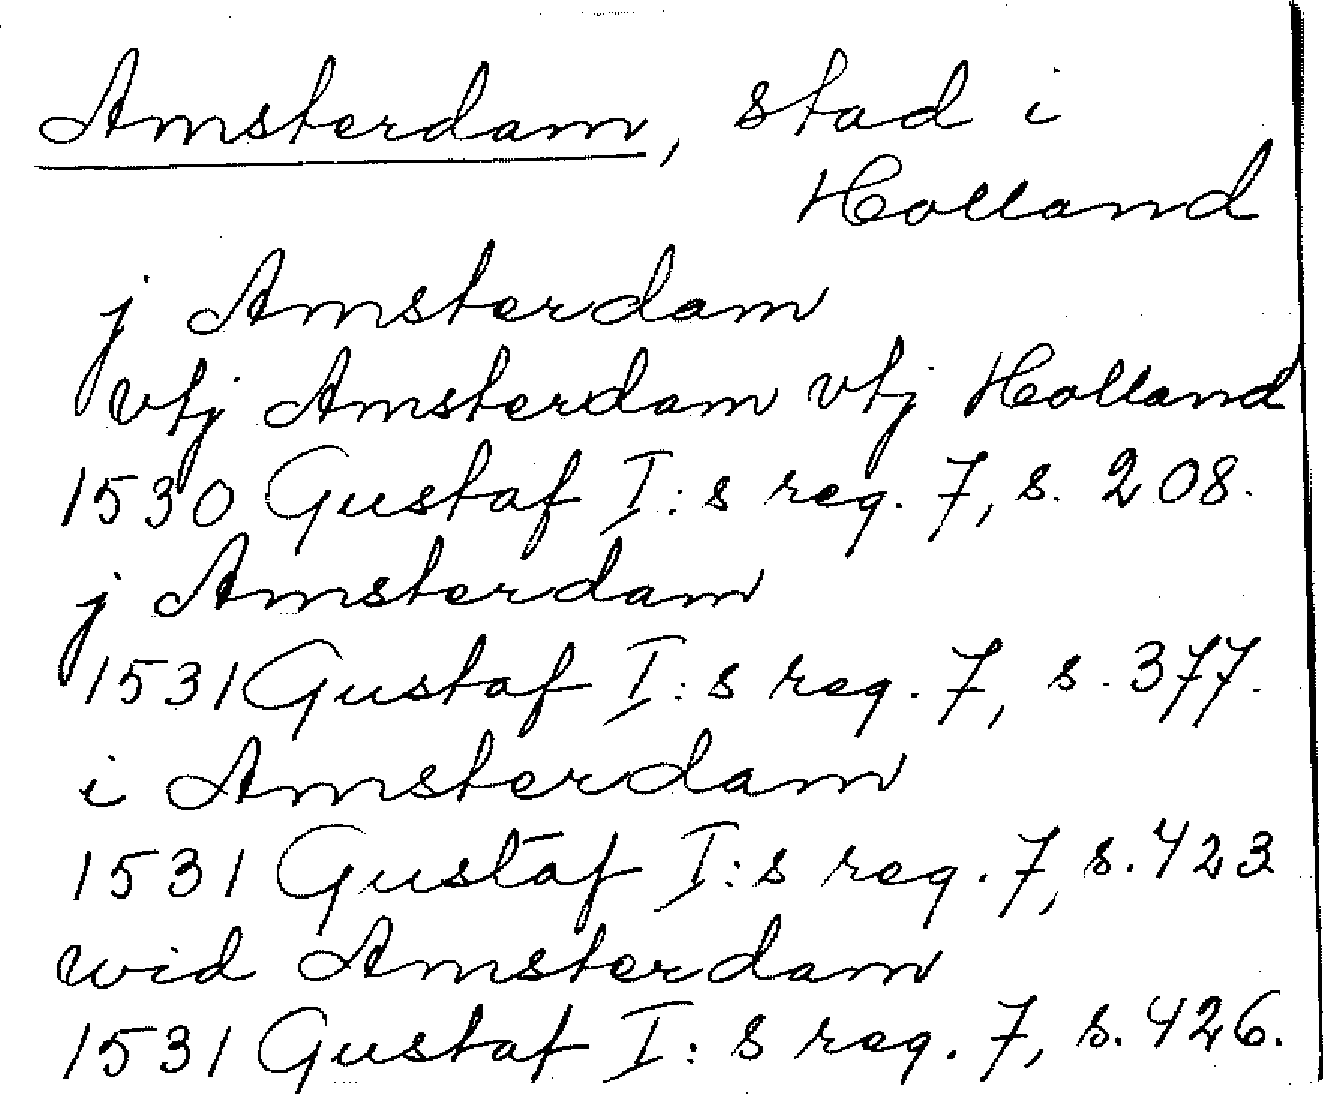 Amsterdam, stad i
Holland
j Amsterdam
vtj Amsterdam vtj Holland
1530 Gustaf I:s reg. 7, s. 208.
j Amsterdam
1531 Gustaf I:s reg. 7, s. 377.
i Amsterdam
1531 Gustaf I:s reg. 7, s. 423
wid Amsterdam
1531 Gustaf I:s reg. 7, s. 426.